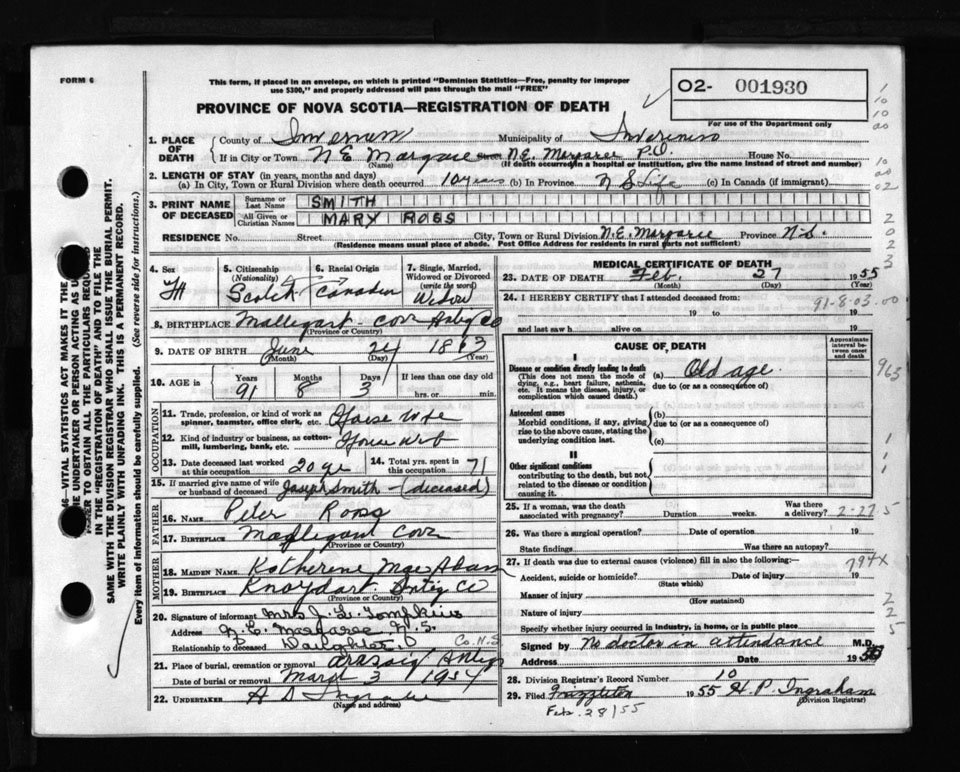 FORM 6
This form, if placed in an envelope, on which is printed "Dominion Statistics—Free, penalty for improper
use $300," and properly addressed will pass through the mail "FREE"
PROVINCE OF NOVA SCOTIA—REGISTRATION OF DEATH
O2- 001930
For use of the Department only
1. PLACE OF DEATH
County of Inverness Municipality of Inverness
If in City or Town N E Margaree Street N.E. Margaree P.O. House No.
(Name) (If death occurred in a hospital or institution, give the name instead of street and number)
2. LENGTH OF STAY (in years, months and days)
(a) In City, Town or Rural Division where death occurred 10 years (b) In Province N S Life (c) In Canada (if immigrant)
3. PRINT NAME OF DECEASED
Surname or Last Name SMITH
All Given or Christian Names MARY ROSS
RESIDENCE No. Street City, Town or Rural Division N.E. Margaree Province N.S.
(Residence means usual place of abode. Post Office Address for residents in rural parts not sufficient)
4. Sex
5. Citizenship (Nationality) Scotch
6. Racial Origin Canadian
7. Single, Married, Widowed or Divorced (write the word) Widow
8. BIRTHPLACE Antig Co
(Province or Country)
9. DATE OF BIRTH June 24 1863
(Month) (Day) (Year)
10. AGE in Years 91 Months 8 Days 3 If less than one day old hrs. or min.
OCCUPATION
11. Trade, profession, or kind of work as spinner, teamster, office clerk, etc. House wife
12. Kind of industry or business, as cotton-mill, lumbering, bank, etc.
13. Date deceased last worked at this occupation 20
14. Total yrs. spent in this occupation 71
15. If married give name of wife or husband of deceased Joseph Smith - (deceased)
FATHER
16. NAME Peter Ross
17. BIRTHPLACE
(Province or Country)
MOTHER
18. MAIDEN NAME Katherine MacAdam
19. BIRTHPLACE Knoydart Antig Co
(Province or Country)
20. Signature of informant Mrs J. L. Tompkins
Address N.E. Margaree N.S.
Relationship to deceased Daughter
21. Place of burial, cremation or removal Arasaig Antig Co. N.S
Date of burial or removal March 3 1954
22. UNDERTAKER
(Name and address)
MEDICAL CERTIFICATE OF DEATH
23. DATE OF DEATH Feb. 27 1955
(Month) (Day)
24. I HEREBY CERTIFY that I attended deceased from:
91-8-03.00
19 to 19
and last saw h alive on 19
CAUSE OF DEATH
Approximate interval between onset and death
I
Disease or condition directly leading to death
(This does not mean the mode of dying, e.g., heart failure, asthenia, etc. It means the disease, injury, or complication which caused death.)
(a) Old age.
due to (or as a consequence of)
963
Antecedent causes
Morbid conditions, if any, giving rise to the above cause, stating the underlying condition last.
(b)
due to (or as a consequence of)
(c)
II
Other significant conditions
contributing to the death, but not related to the disease or condition causing it.
25. If a woman, was the death associated with pregnancy? Duration weeks. Was there a delivery? 2-27 5
26. Was there a surgical operation? Date of operation 19
State findings Was there an autopsy?
27. If death was due to external causes (violence) fill in also the following: 794X
Accident, suicide or homicide? Date of injury 19
(State which)
Manner of injury
(How sustained)
Nature of injury
Specify whether injury occurred in industry, in home, or in public place
Signed by No doctor in attendance M.D.
Address Date 19
28. Division Registrar's Record Number 10
29. Filed 1955 H. P. Ingraham
(Division Registrar)
Feb. 28/55
VITAL STATISTICS ACT MAKES IT THE
THE UNDERTAKER OR PERSON ACTING AS
TO OBTAIN ALL THE PARTICULARS REQUIRED
IN THE "REGISTRATION OF DEATH" AND TO FILE THE
SAME WITH THE DIVISION REGISTRAR WHO SHALL ISSUE THE BURIAL PERMIT.
WRITE PLAINLY WITH UNFADING INK. THIS IS A PERMANENT RECORD.
Every item of information should be carefully supplied. (See reverse side for instructions).